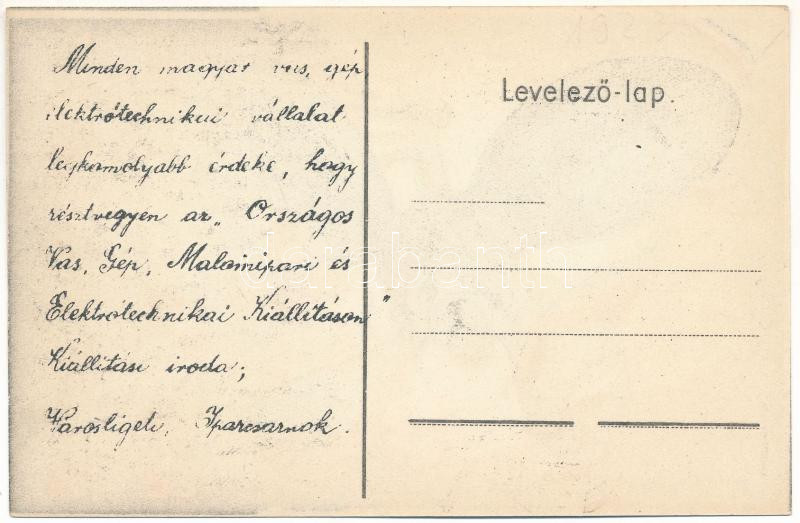 Minden magyar vas, gép,
elektrótechnikai vállalat
legkomolyabb érdeke, hogy
résztvegyen az „ Országos
Vas, Gép, Malomipari és
Elektrótechnikai Kiállitáson”
Kiállitási iroda;
Városligeti, Iparcsarnok.
Levelező-lap.
darabanth